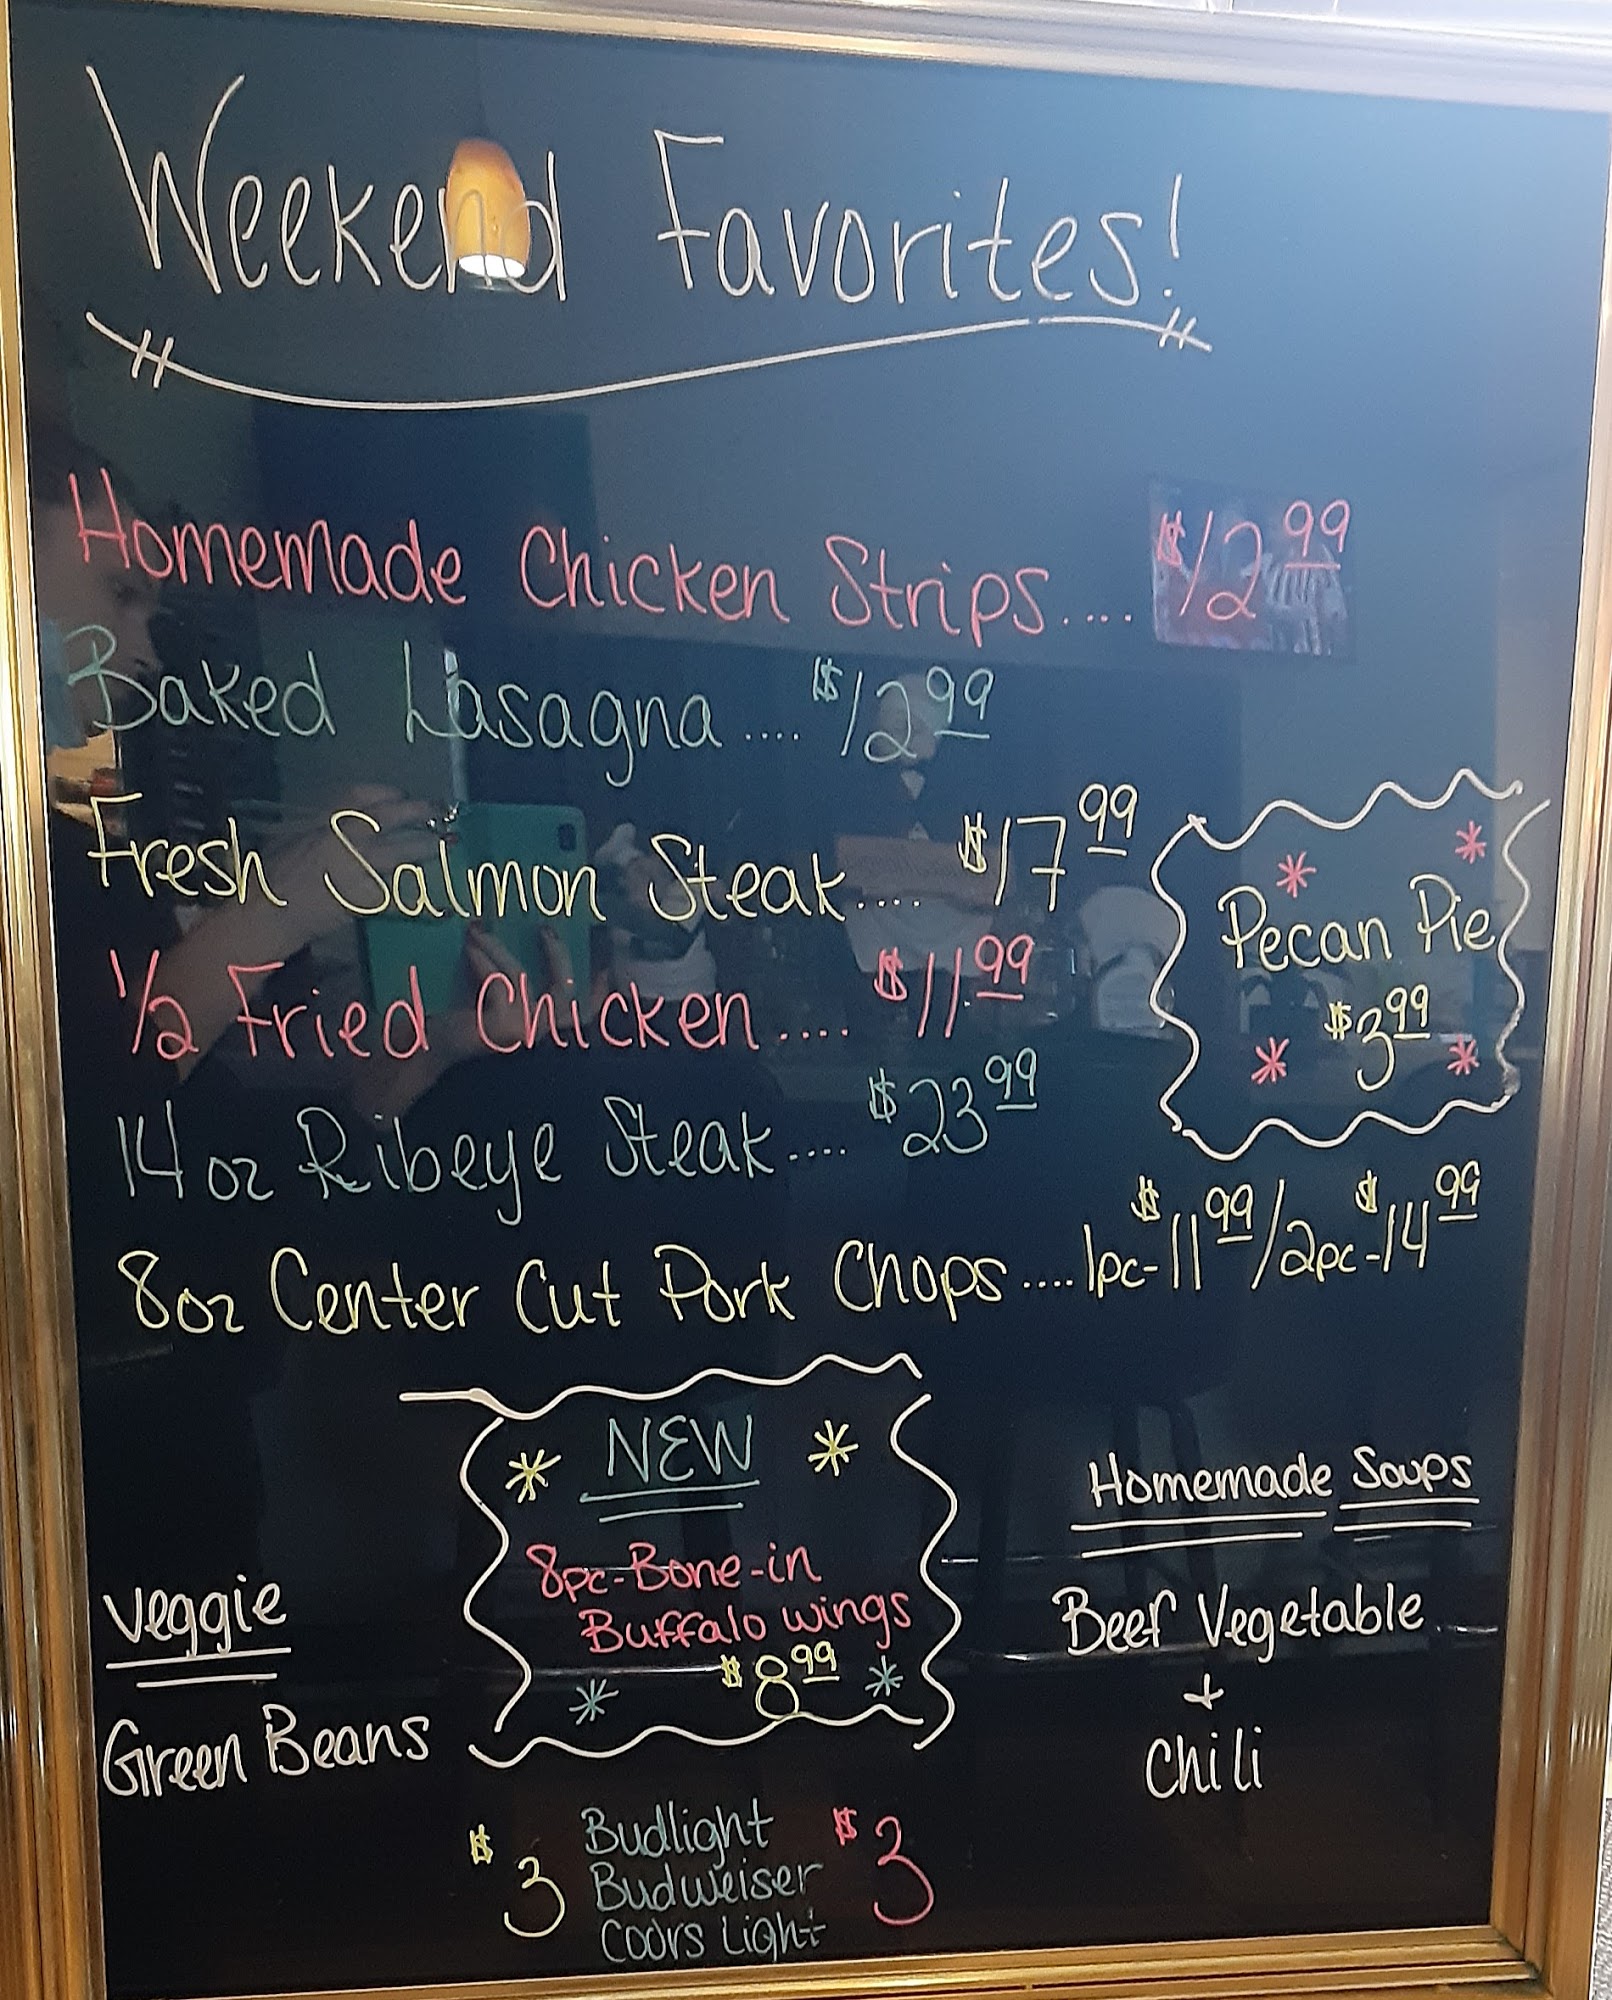 Weekend Favorites!
Homemade Chicken Strips.... $12.99
Baked Lasagna.... $12.99
Fresh Salmon Steak.... $17.99
1/2 Fried Chicken.... $11.99
14 oz Ribeye Steak.... $23.99
8oz Center Cut Pork Chops.... 1pc-$11.99/2pc-$14.99
* *
Pecan Pie
$3.99
* *
* NEW *
8pc-Bone-in
Buffalo wings
$8.99
* *
Veggie
Green Beans
Homemade Soups
Beef Vegetable
+
Chili
$3 Budlight $3
Budweiser
Coors Light